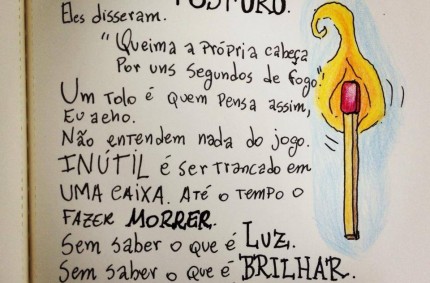 FÓSFORO.
Eles disseram.
"Queima a própria cabeça
Por uns segundos de fogo."
Um tolo é quem pensa assim,
Eu acho.
Não entendem nada do jogo.
INÚTIL é ser trancado em
UMA CAIXA. Até o tempo o
FAZER MORRER.
Sem saber o que é LUZ.
Sem saber o que é BRILHAR.